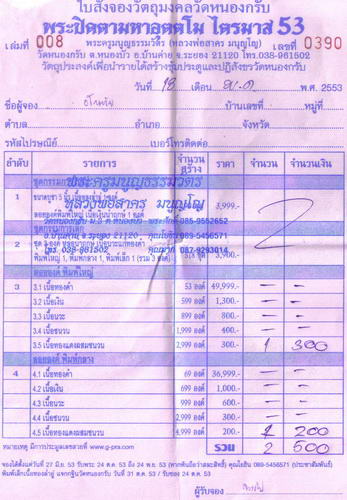 ใบสั่งจองวัตถุมงคลวัดหนองกรับ
พระปิดตามหาอุตตโม ไตรมาส 53
เล่มที่ 008 พระครูมนูญธรรมวัตร (หลวงพ่อสาคร มนุญโญ) เลขที่ 0390
วัดหนองกรับ ต.หนองบัว อ.บ้านค่าย จ.ระยอง 21120 โทร.038-961502
วัตถุประสงค์เพื่อนำรายได้สร้างซุ้มประตูและปฏิสังขรวัดหนองกรับ
วันที่ 18 เดือน พ.ศ. 2553
ชื่อผู้จอง บ้านเลขที่ หมู่ที่
ตำบล อำเภอ จังหวัด
รหัสไปรษณีย์ เบอร์โทรติดต่อ
ลำดับ รายการ จำนวนสร้าง ราคา จำนวน จำนวนเงิน
พระครูมนูญธรรมวัตร
1 3,999.-
หลวงพ่อสาคร มนุญโญ
089-9552652
อ.บ้านค่าย จ.ระยอง 21120 089-5456571
2 3,900.-
โทร. 038-961502 087-9293014
พิมพ์ใหญ่ 1, พิมพ์กลาง 1, พิมพ์เล็ก 1 (รวม 3 องค์)
ลอยองค์ พิมพ์ใหญ่
3 3.1 เนื้อทองคำ 53 องค์ 49,999.- –
3.2 เนื้อเงิน 599 องค์ 1,300.- –
3.3 เนื้อนวะ 899 องค์ 800.- –
3.4 เนื้อชนวน 2,999 องค์ 400.- –
3.5 เนื้อทองแดงผสมชนวน 2,999 องค์ 300.- 1 300
ลอยองค์ พิมพ์กลาง
4 4.1 เนื้อทองคำ 69 องค์ 36,999.- –
4.2 เนื้อเงิน 699 องค์ 1,000.- –
4.3 เนื้อนวะ 999 องค์ 600.- –
4.4 เนื้อชนวน 2,999 องค์ 300.- –
4.5 เนื้อทองแดงผสมชนวน 4,999 องค์ 200.- 1 200
หมายเหตุ มีการประมูลเลขสวยที่ www.g-pra.com รวม 2 500
จองได้ตั้งแต่วันที่ 27 มิ.ย. 53 รับพระ 24 ต.ค. 53 ถึง 24 พ.ย. 53 089-5456571 (ประชาสัมพันธ์)
31 ต.ค. 53 / 24 ต.ค. 53
ผู้รับจอง